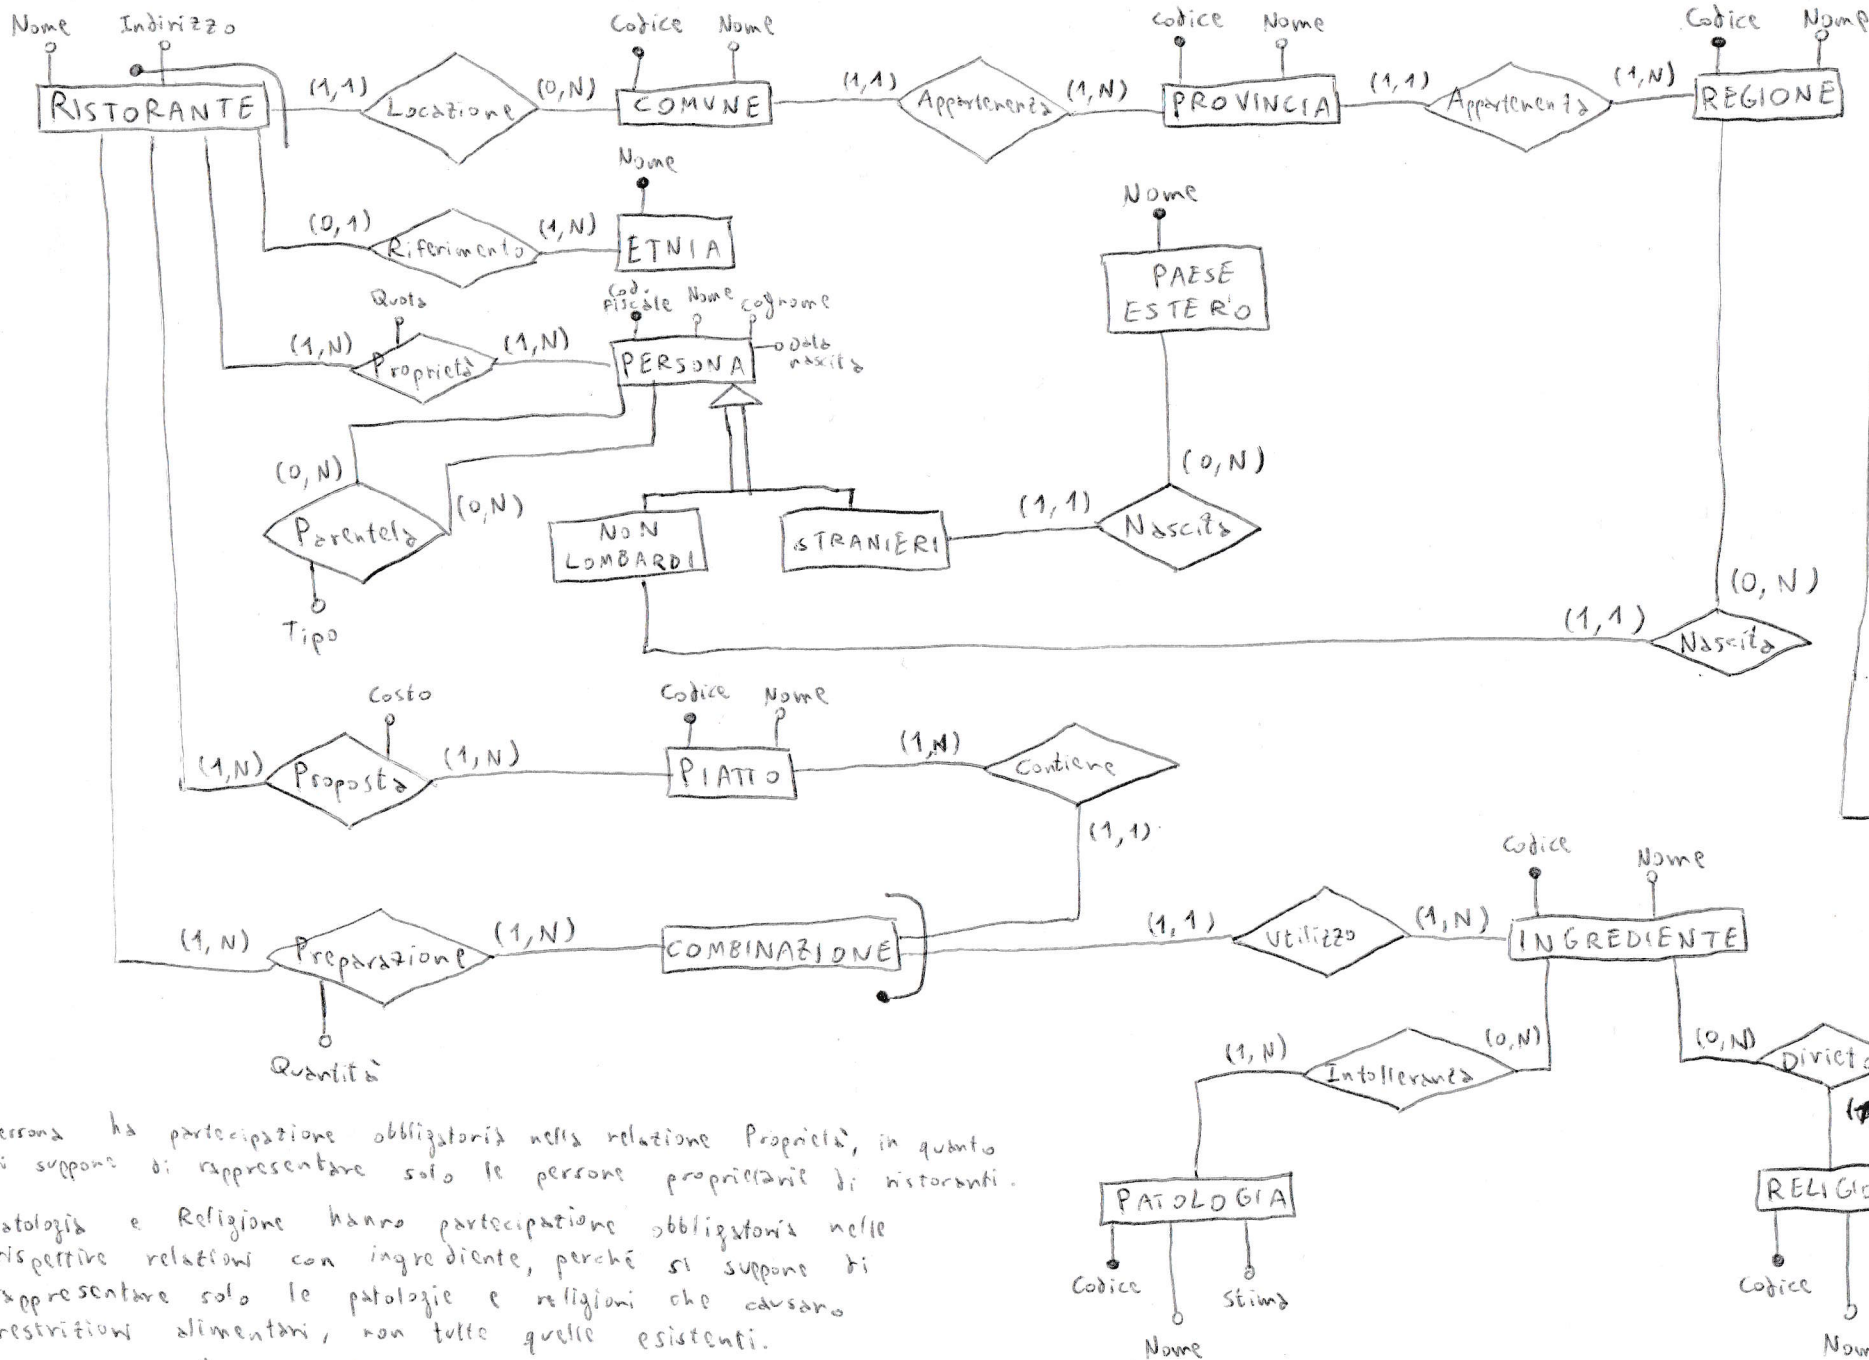 Nome Indirizzo Codice Nome Codice Nome Codice Nome
RISTORANTE (1,1) Locazione (0,N) COMUNE (1,1) Appartenenza (1,N) PROVINCIA (1,1) Appartenenza (1,N) REGIONE
Nome
(0,1) Riferimento (1,N) ETNIA
Nome
PAESE
ESTERO
Quota Cod. Nome Cognome
Fiscale
(1,N) Proprietà (1,N) PERSONA Data
nascita
(0,N) (0,N)
Parentela
Tipo
NON
LOMBARDI
STRANIERI (1,1) Nascita (0,N)
(1,1) Nascita (0,N)
Costo Codice Nome
(1,N) Proposta (1,N) PIATTO (1,N) Contiene
(1,1)
Codice Nome
(1,N) Preparazione (1,N) COMBINAZIONE (1,1) Utilizzo (1,N) INGREDIENTE
Quantità
(1,N) Intolleranza (0,N) (0,N) Divieto
PATOLOGIA
Codice Nome Stima
RELIGIO
Codice Nom
ersona ha partecipazione obbligatoria nella relazione Proprietà, in quanto
i suppone di rappresentare solo le persone proprietarie di ristoranti.
atologia e Religione hanno partecipazione obbligatoria nelle
rispettive relazioni con ingrediente, perché si suppone di
appresentare solo le patologie e religioni che causano
restrizioni alimentari, non tutte quelle esistenti.